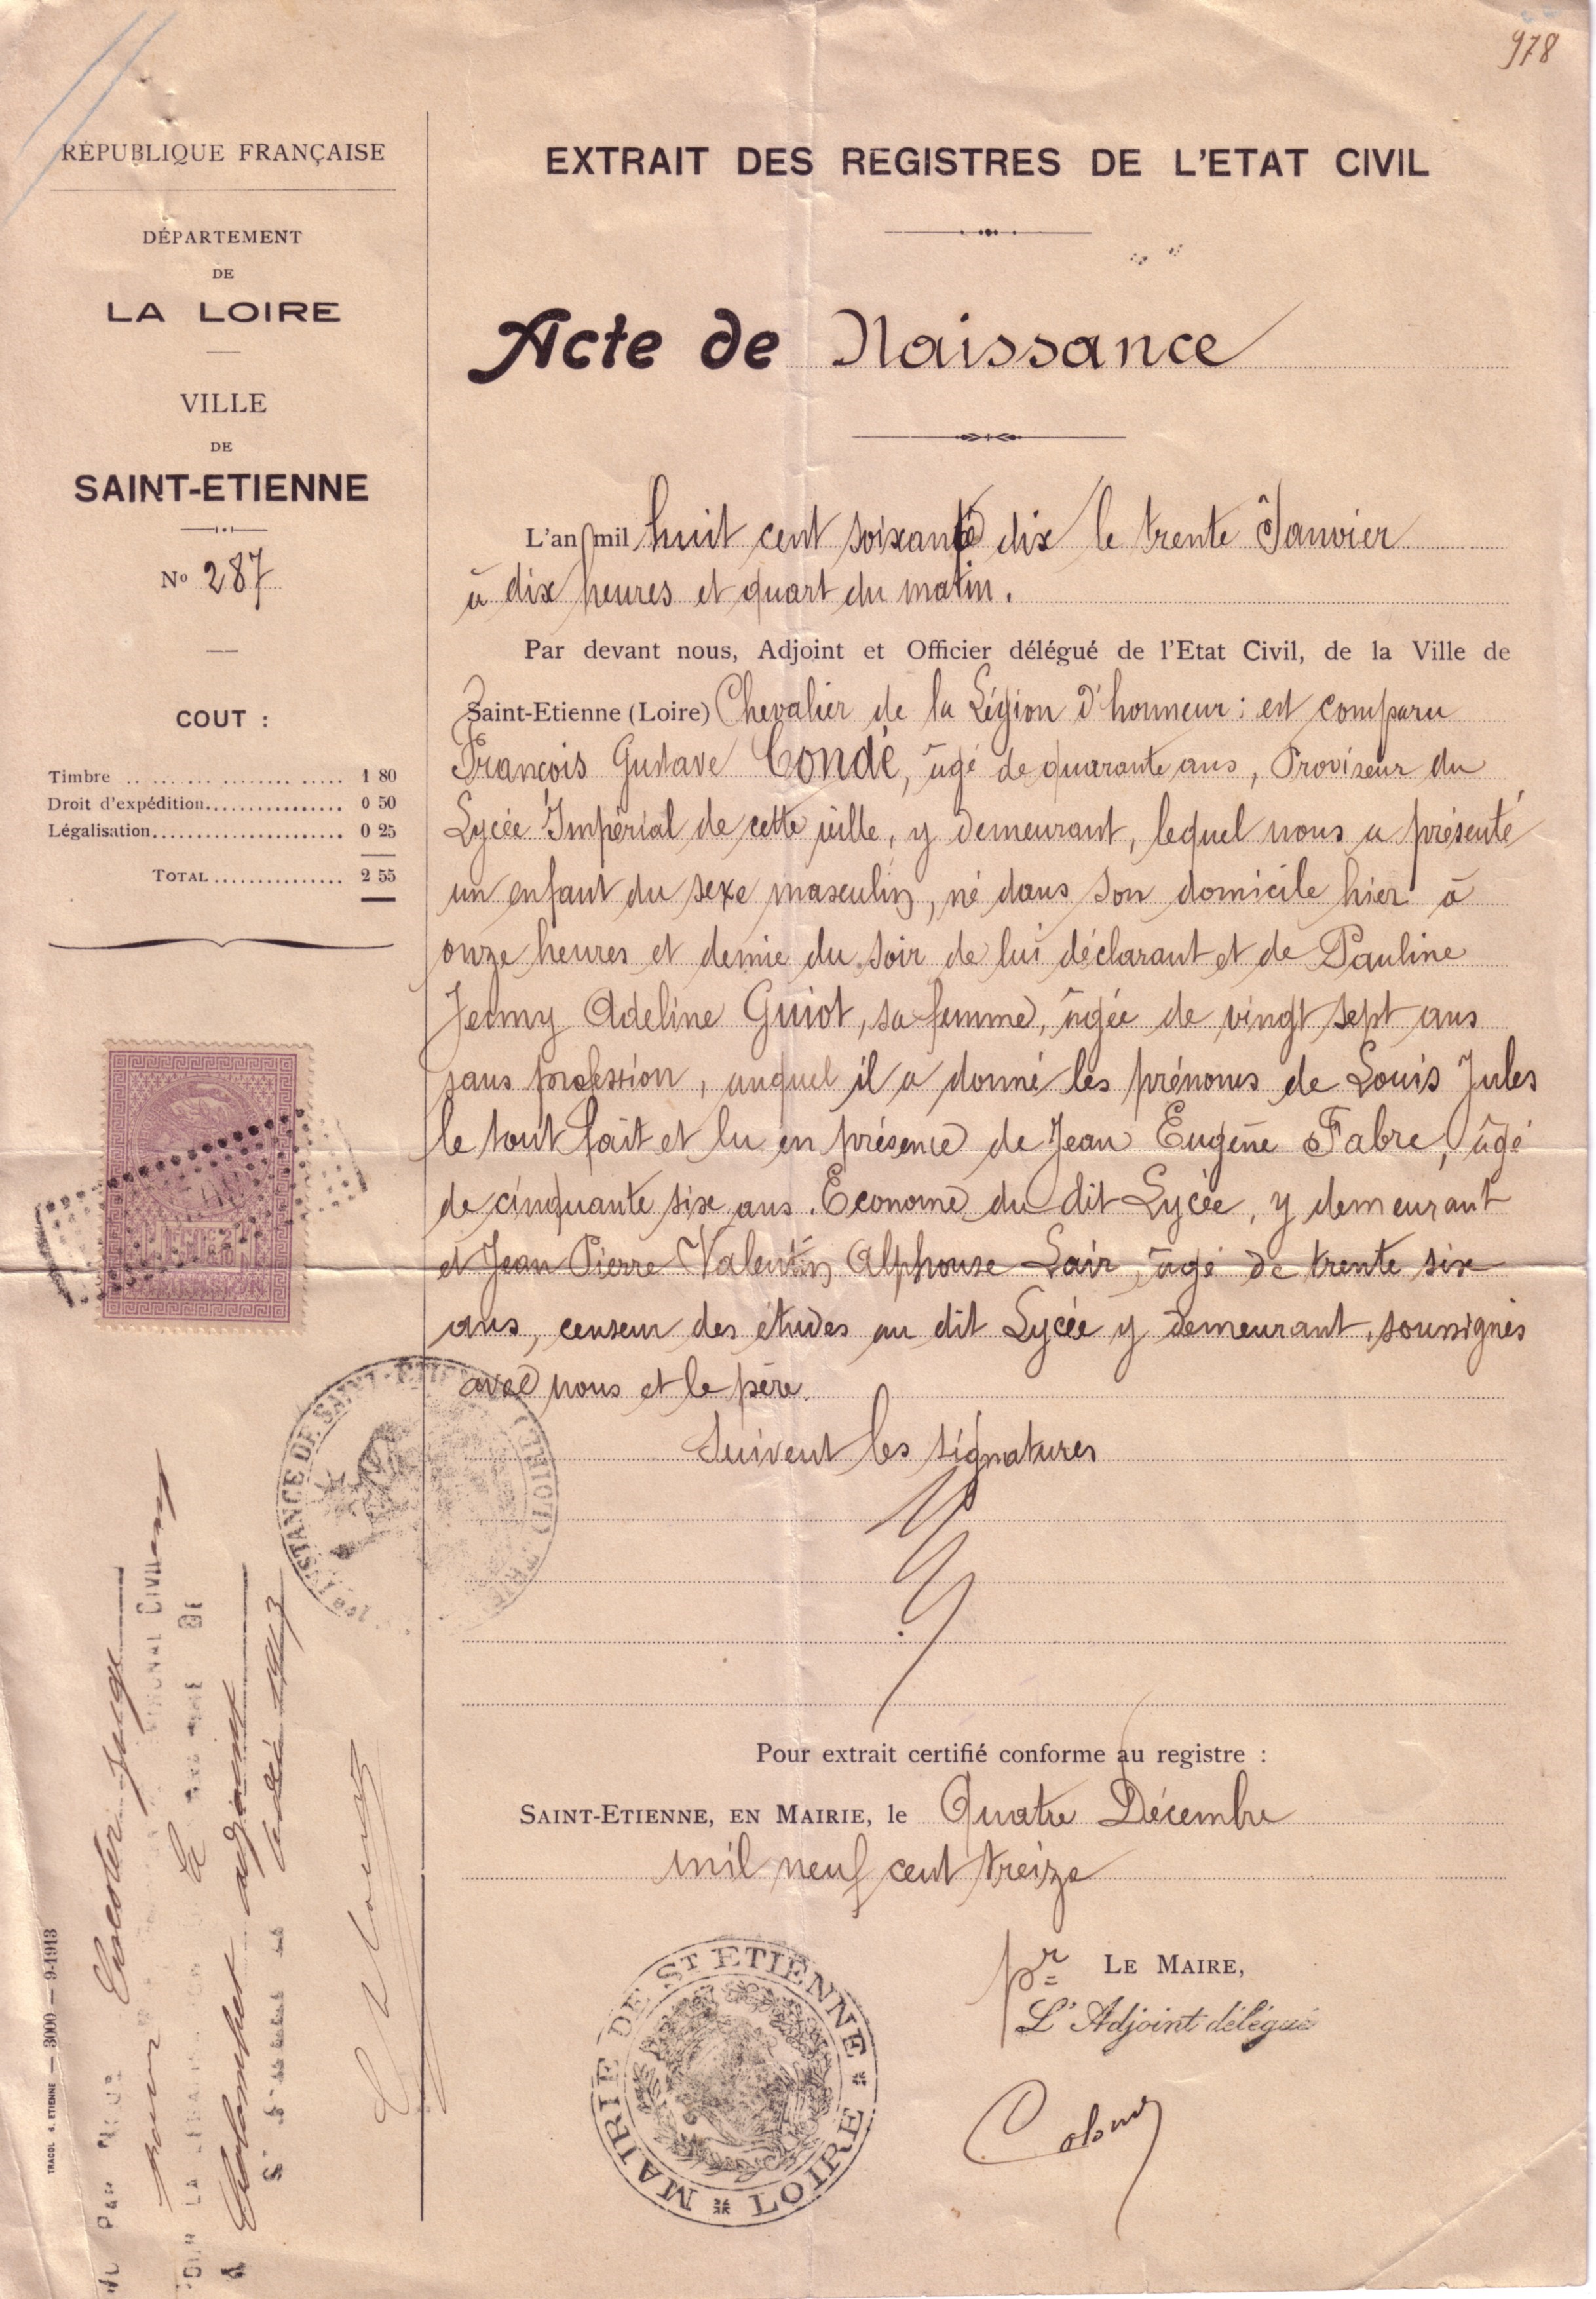 978
RÉPUBLIQUE FRANÇAISE
DÉPARTEMENT
DE
LA LOIRE
VILLE
DE
SAINT-ETIENNE
No 287
COUT :
Timbre .. ... ... ......... ..... 1 80
Droit d'expédition................ 0 50
Légalisation...................... 0 25
TOTAL ............... 2 55
EXTRAIT DES REGISTRES DE L'ETAT CIVIL
Acte de Naissance
L'an mil huit cent soixante dix le trente Janvier
à dix heures et quart du matin.
Par devant nous, Adjoint et Officier délégué de l'Etat Civil, de la Ville de
Saint-Etienne (Loire) Chevalier de la Légion d'honneur : est comparu
François Gustave Condé, âgé de quarante ans, Proviseur du
Lycée Impérial de cette ville, y demeurant, lequel nous a présenté
un enfant du sexe masculin, né dans son domicile hier à
onze heures et demie du soir de lui déclarant et de Pauline
Jenny Adeline Guiot, sa femme, âgée de vingt sept ans
sans profession, auquel il a donné les prénoms de Louis Jules
le tout fait et lu en présence de Jean Eugène Fabre, âgé
de cinquante six ans. Econome du dit Lycée, y demeurant
et Jean Pierre Valentin Alphonse Lair, âgé de trente six
ans, censeur des études au dit Lycée y demeurant, soussignés
avec nous et le père.
Suivent les signatures
Pour extrait certifié conforme au registre :
SAINT-ETIENNE, EN MAIRIE, le Quatre Décembre
mil neuf cent treize
pr LE MAIRE,
L'Adjoint délégué
MAIRIE DE ST ETIENNE
LOIRE
INSTANCE DE SAINT-ETIENNE (LOIRE)
TRACOL S. ETIENNE — 3000 — 9-1913
juge
adjoint
1913